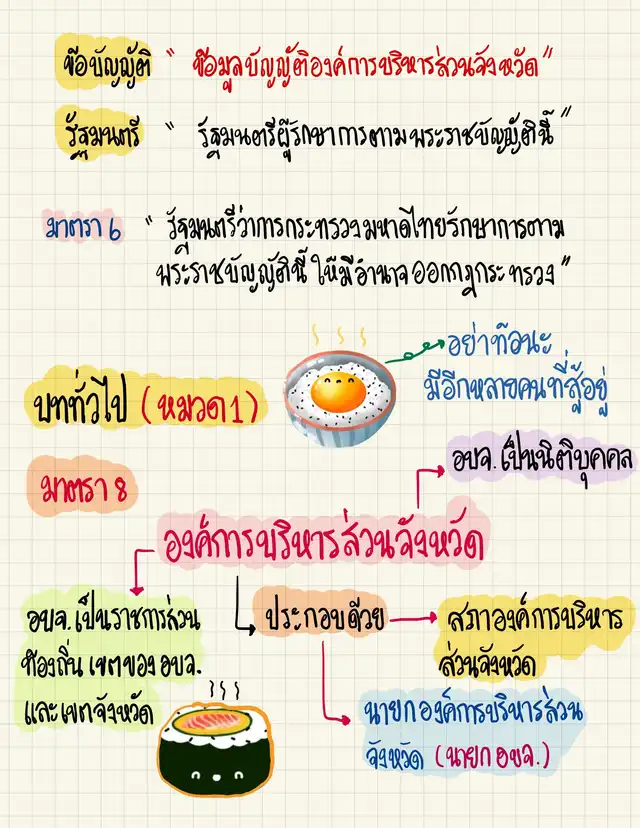 ข้อบัญญัติ " ข้อมูลบัญญัติองค์การบริหารส่วนจังหวัด"
รัฐมนตรี " รัฐมนตรีผู้รักษาการตามพระราชบัญญัตินี้"
มาตรา 6 " รัฐมนตรีว่าการกระทรวงมหาดไทยรักษาการตาม
พระราชบัญญัตินี้ ให้มีอำนาจออกกฎกระทรวง"
อย่าท้อนะ
มีอีกหลายคนที่สู้อยู่
บททั่วไป (หมวด 1)
อบจ. เป็นนิติบุคคล
มาตรา 8
องค์การบริหารส่วนจังหวัด
อบจ. เป็นราชการส่วน
ท้องถิ่น เขตของ อบจ.
และเขตจังหวัด
ประกอบด้วย
สภาองค์การบริหาร
ส่วนจังหวัด
นายกองค์การบริหารส่วน
จังหวัด (นายก อบจ.)